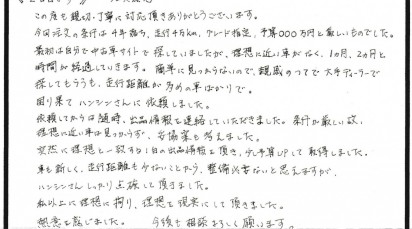 この度も親切・丁寧に対応頂きありがとうございます。
今回注文の条件は4年落ち、走行4万km、グレード指定、予算000万円と厳しいものでした。
最初は自分で中古車サイトで探していましたが、理想に近い車がなく、1ヵ月、2ヵ月と
時間が経過していきます。簡単に見つからないので、親戚のつてで大手ディーラーで
探してもらうも、走行距離が多めの車ばかりで。
困り果てハンシンさんに依頼しました。
依頼してからは随時、出品情報を連絡していただきました。条件が厳しい故、
理想に近い車は見つからず、妥協案も考えました。
突然に理想と一致する1台の出品情報を頂き、少し予算UPして取得しました。
車も新しく、走行距離も少ないことから、整備必要ないと思えますが、
ハンシンさんしっかり点検して頂きました。
私以上に理想に拘り、理想を現実にして頂きました。
熱意を感じました。 今後も相談よろしく願います。